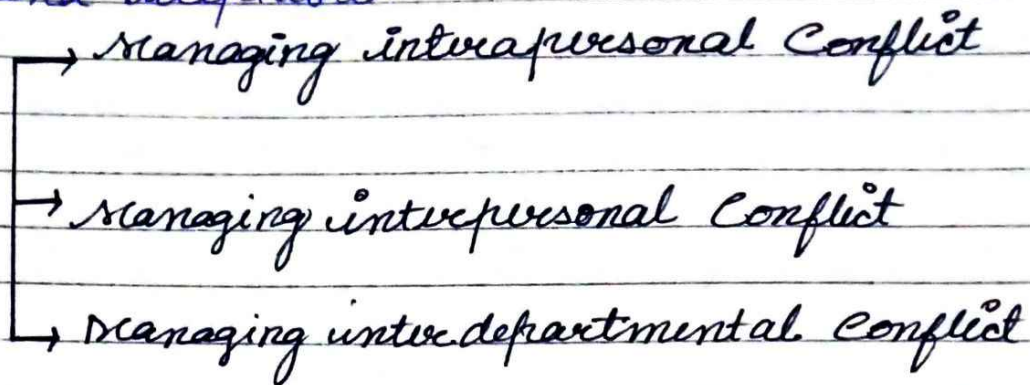 → Managing intrapersonal Conflict
→ Managing interpersonal Conflict
→ Managing interdepartmental Conflict